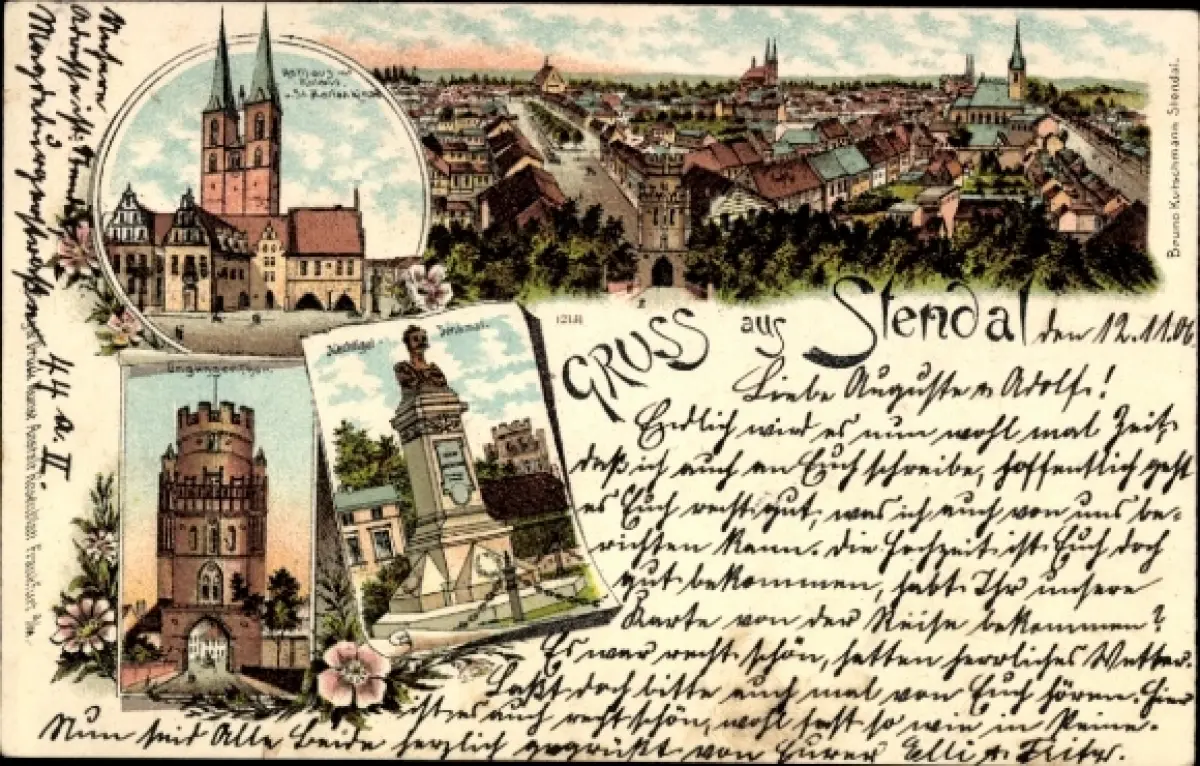 Meine
Adresse ist: Stendal
Magdeburgerstraße
44 a. II.
Rathaus mit
Roland
u. St. Marienkirche
Bruno Kutschmann, Stendal.
Uenglinger Thor.
Nachtigal-
Denkmal.
1218
GRUSS aus Stendal
den 12.11.06
Liebe Auguste u. Adolf!
Endlich wird es nun wohl mal Zeit,
daß ich auch an Euch schreibe, hoffentlich geht
es Euch recht gut, was ich auch von uns be-
richten kann. Die Hochzeit ist Euch doch
gut bekommen, habt Ihr unsere
Karte von der Reise bekommen?
Es war recht schön, hatten herrliches Wetter.
Laßt doch bitte auch mal von Euch hören. Hier
ist es auch recht schön, wohl fast so wie in Peine.
Nun seid Alle Beide herzlich gegrüßt von Eurer Elli u. Fritz.